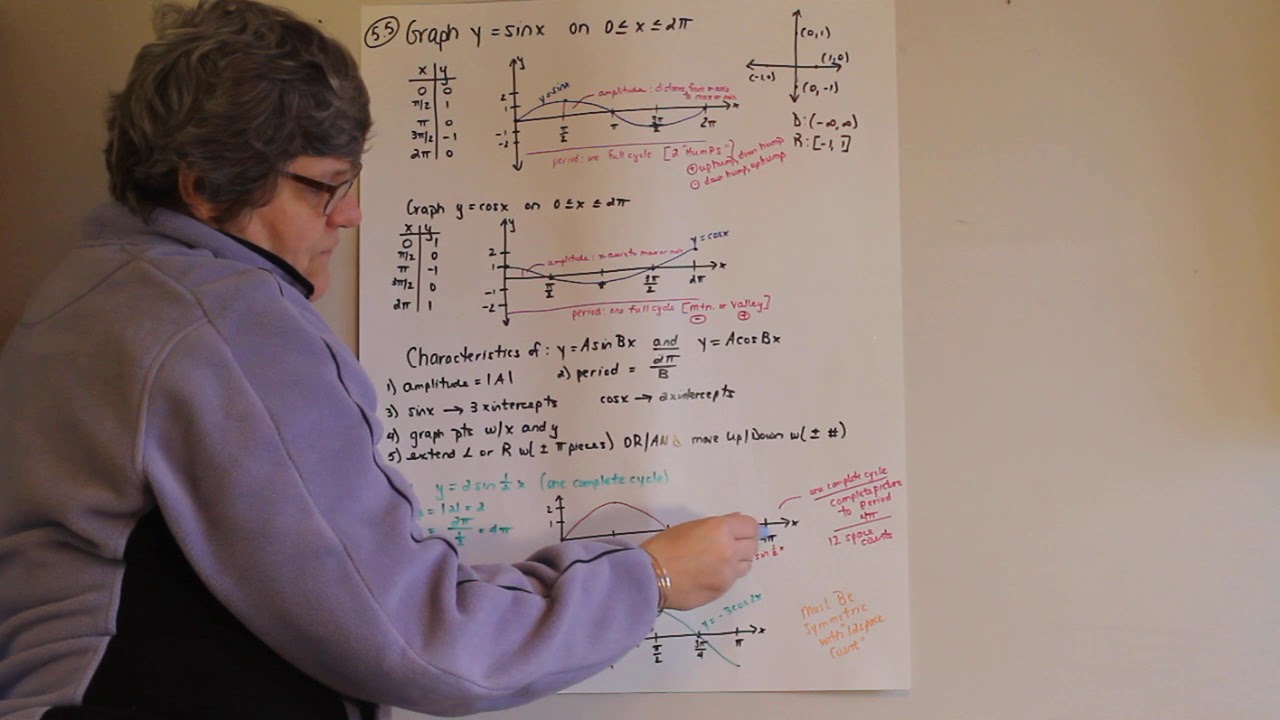 5.5 Graph y = sinx on 0 ≤ x ≤ 2π
x y
0 0
π/2 1
π 0
3π/2 -1
2π 0
y
2
1
-1
-2
y=sinx
amplitude: distance from x axis
to max or min
x
π/2 π 3π/2 2π
period: one full cycle [2 "Humps"]
+ up hump, down hump
- down hump, up hump
(0,1)
(-1,0) (1,0)
(0,-1)
D: (-∞, ∞)
R: [-1, 1]
Graph y = cosx on 0 ≤ x ≤ 2π
x y
0 1
π/2 0
π -1
3π/2 0
2π 1
y
2
1
-1
-2
y = cosx
amplitude: x axis to max or min
x
π/2 π 3π/2 2π
period: one full cycle [mtn. or valley]
- +
Characteristics of: y = A sin Bx and y = A cos Bx
1) amplitude = |A| 2) period = 2π/B
3) sinx → 3 x intercepts cosx → 2 x intercepts
4) graph pts w/ x and y
5) extend L or R w(± π pieces) OR/AND move Up/Down w(± #)
y = 2 sin 1/2 x (one complete cycle)
= |2| = 2
= 2π/(1/2) = 4π
2
1
x
4π
sin 1/2 x
one complete cycle
complete picture
to period
4π
12 space
counts
y = -3cos2x
x
π/2 3π/4 π
Must Be
symmetric
with "12 space
count"